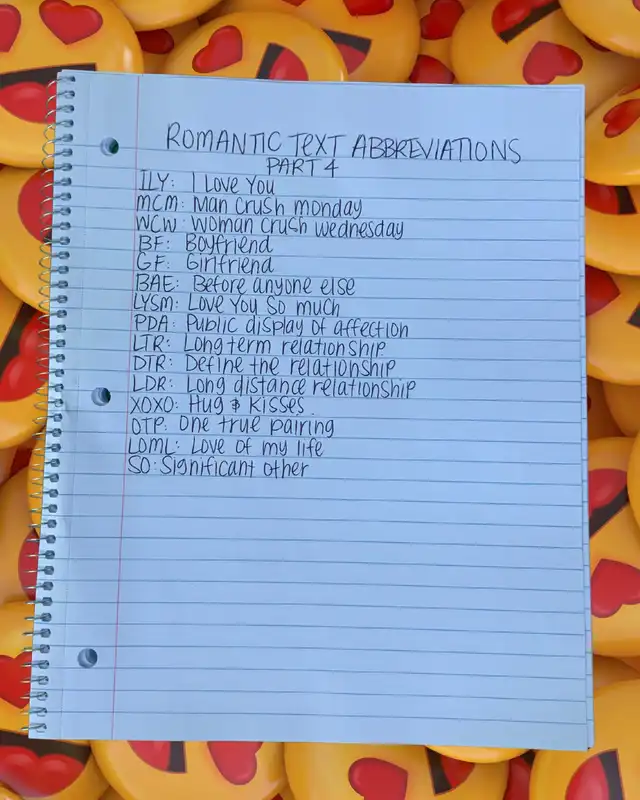 ROMANTIC TEXT ABBREVIATIONS
PART 4
ILY: I Love You
MCM: Man Crush monday
WCW: Woman crush wednesday
BF: Boyfriend
GF: Girlfriend
BAE: Before anyone else
LYSM: Love You So much
PDA: Public display of affection
LTR: Long term relationship
DTR: Define the relationship
LDR: Long distance relationship
XOXO: Hug & Kisses
OTP: One true pairing
LOML: Love of my life
SO: Significant other